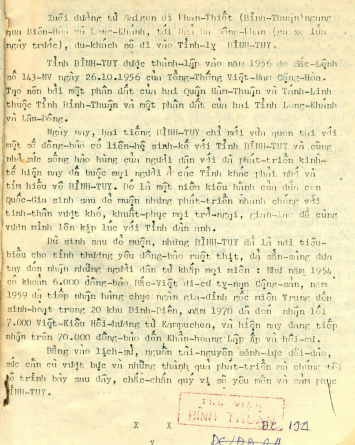 Xuôi đường từ Saigon đi Phan-Thiết (Bình-Thuận) ngang
qua Biên-Hòa và Long-Khánh, tới Ngã Ba Ông-Đồn (ga xe lửa
ngày trước), du-khách sẽ đi vào Tỉnh-lỵ BÌNH-TUY.
Tỉnh BÌNH-TUY được thành-lập vào năm 1956 do Sắc-Lệnh
số 143-NV ngày 26.10.1956 của Tổng-Thống Việt-Nam Cộng-Hòa.
Tạo nên bởi một phần đất của hai Quận Hàm-Thuận và Tánh-Linh
thuộc Tỉnh Bình-Thuận và một phần đất của hai Tỉnh Long-Khánh
và Lâm-Đồng.
Ngày nay, hai tiếng BÌNH-TUY chỉ mới vừa quen tai với
một số đồng-bào có liên-hệ sinh-kế với Tỉnh BÌNH-TUY và cũng
nhờ sức sống hào hùng của người dân với đà phát-triển kinh-
tế hiện nay đã buộc mọi người ở các Tỉnh khác phải nhớ và
tìm hiểu về BÌNH-TUY. Đó là một niềm kiêu hãnh của đứa con
Quốc-Gia sinh sau đẻ muộn nhưng phát-triển nhanh chóng với
tinh-thần vượt khó, khuất-phục mọi trở-ngại, gian-lao để cùng
vươn mình lên kịp lúc với Tỉnh đàn anh.
Dù sinh sau đẻ muộn, nhưng BÌNH-TUY đã là nơi tiêu-
biểu cho tình thương yêu đồng-bào ruột thịt, đã sẵn-sàng đưa
tay đón nhận những người dân từ khắp mọi miền : Như năm 1954
có khoản 6.000 đồng-bào Bắc-Việt di-cư tỵ-nạn Cộng-sản, năm
1959 đã tiếp nhận hàng chục ngàn gia-đình gốc miền Trung đến
sinh-hoạt trong 20 khu Dinh-Điền, năm 1970 đã đón nhận lối
7.000 Việt-Kiều Hồi-hương từ Kampuchea, và hiện nay đang tiếp
nhận trên 70.000 đồng-bào đến Khẩn-hoang Lập Ấp và hồi-cư.
Bằng vào lịch-sử, nguồn tài-nguyên sản-lực dồi-dào,
sức cần cù vượt bực và những thành quả phát-triển mà chúng tôi
sẽ trình bày sau đây, chắc-chắn quý vị sẽ yêu mến và cảm phục
BÌNH-TUY.
THƯ VIỆN
BÌNH THUẬN
X X
X
ĐC 194